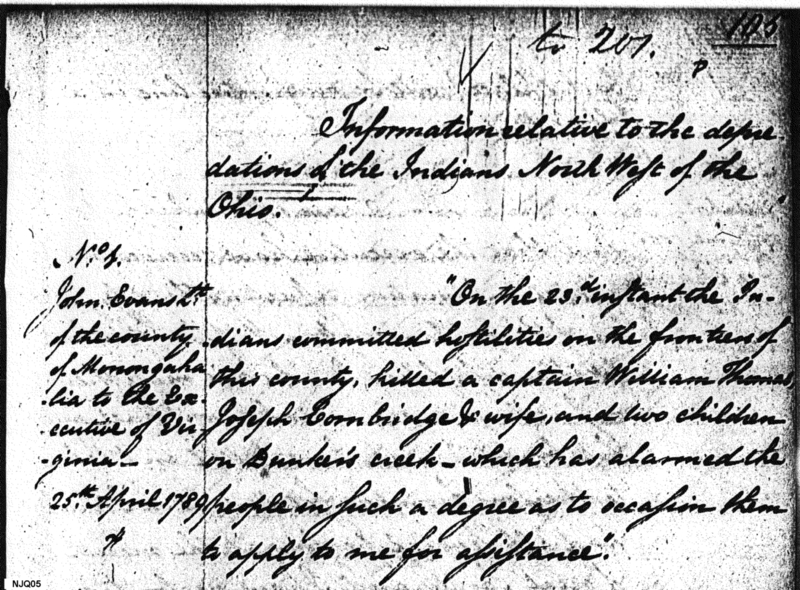 105
to 201.
Information relative to the depre
dations of the Indians North West of the
Ohio.
No. 1.
John Evans Lt.
of the county
of Monongaha
-lia to the Ex-
-ecutive of Vir
-ginia -
25th. April 1789
"On the 23d. instant the In-
-dians committed hostilities on the frontiers of
this county, killed a captain William Thomas,
Joseph Cornbridge & wife, and two children
on Dunker's creek - which has alarmed the
people in such a degree as to occasion them
to apply to me for assistance".
NJQ05